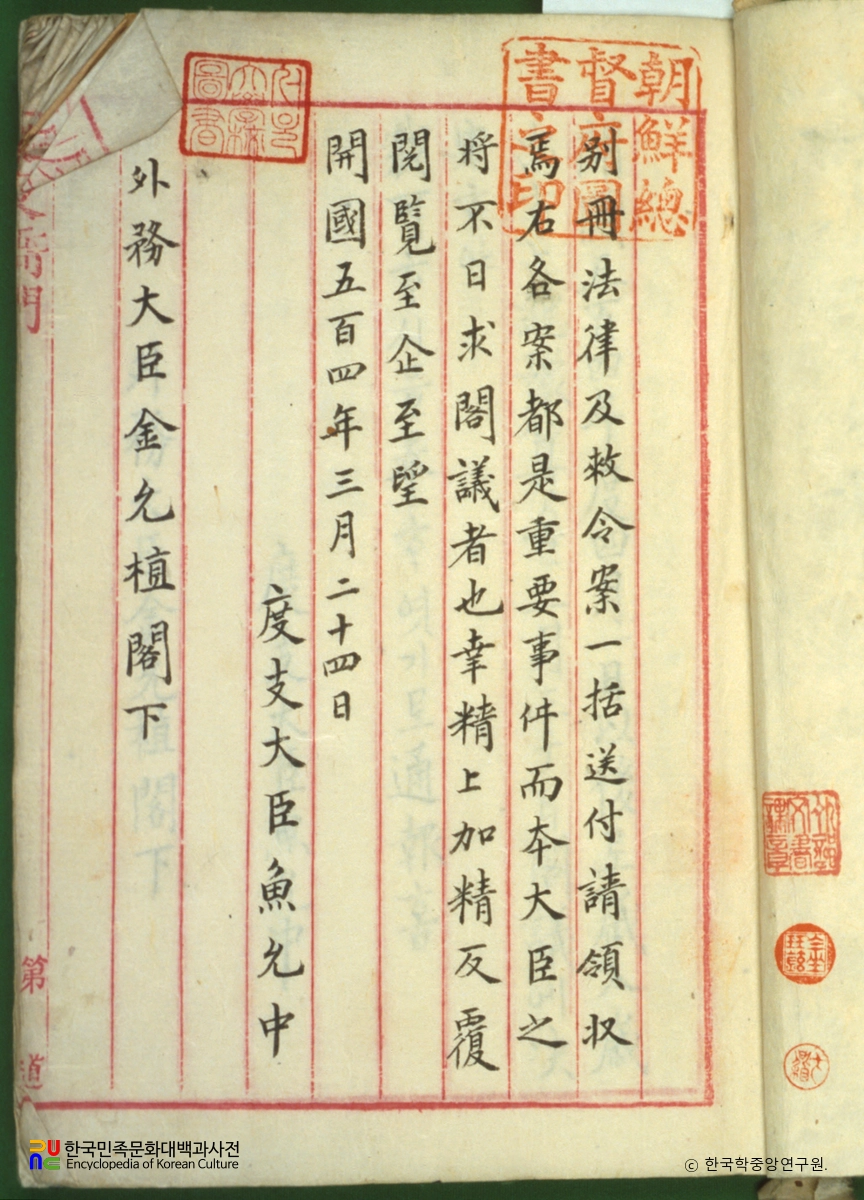 朝鮮總
督府圖
書之印
別冊法律及敕令案一括送付請領収
焉右各案都是重要事件而本大臣之
將不日求閣議者也幸精上加精反覆
閱覽至企至望
開國五百四年三月二十四日
度支大臣魚允中
外務大臣金允植閣下
第 道
한국민족문화대백과사전
Encyclopedia of Korean Culture
ⓒ 한국학중앙연구원.